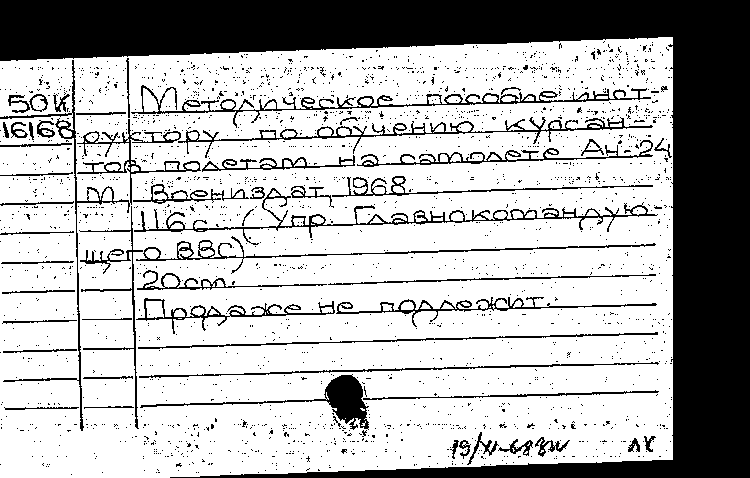 50К Методическое пособие инст-
16168 руктору по обучению курсан-
тов полетам на самолете Ан-24
М, Воениздат, 1968.
116с. (Упр. Главнокомандую-
щего ВВС).
20cm.
Продаже не подлежит.
19/XI-68 ЛК